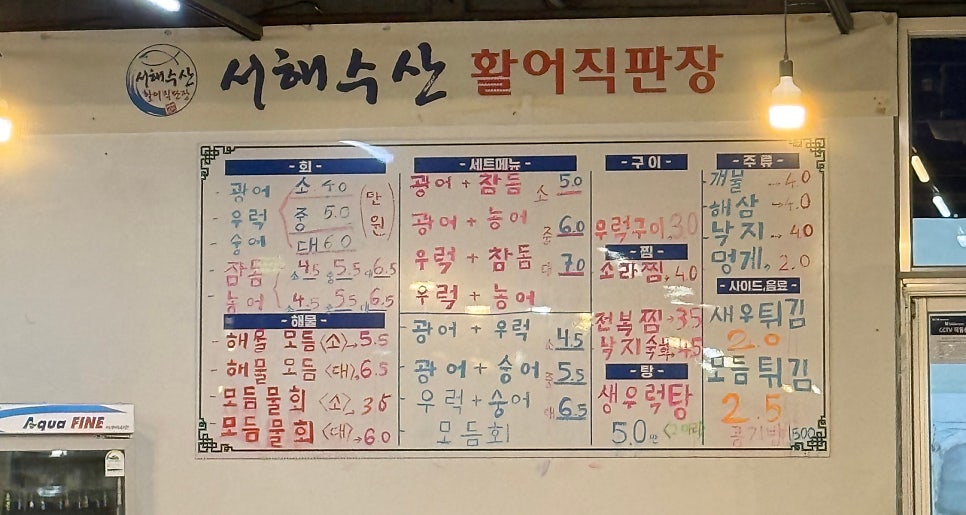 서해수산
활어직판장
서해수산 활어직판장
- 회 -
- 광어 소 4.0 (만원)
- 우럭 중 5.0
- 숭어 대 6.0
- 참돔 소 4.5 중 5.5 대 6.5
- 농어 소 4.5 중 5.5 대 6.5
- 해물 -
- 해물 모듬 <소> → 5.5
- 해물 모듬 <대> → 6.5
- 모듬물회 <소> → 3.5
- 모듬물회 <대> → 6.0
- 세트메뉴 -
광어 + 참돔 소 5.0
광어 + 농어 중 6.0
우럭 + 참돔 대 7.0
우럭 + 농어
광어 + 우럭 소 4.5
광어 + 숭어 중 5.5
우럭 + 숭어 대 6.5
모듬회
- 구 이 -
우럭구이 3.0
- 찜 -
소라찜 → 4.0
전복찜 → 3.5
낙지숙회 4.5
- 탕 -
생우럭탕
5.0만 <2마리>
- 주 류 -
개불 → 4.0
해삼 → 4.0
낙지 → 4.0
멍게 → 2.0
- 사이드,음료 -
새우튀김
2.0
모듬튀김
2.5
공기밥 1500
Aqua FINE
CCTV